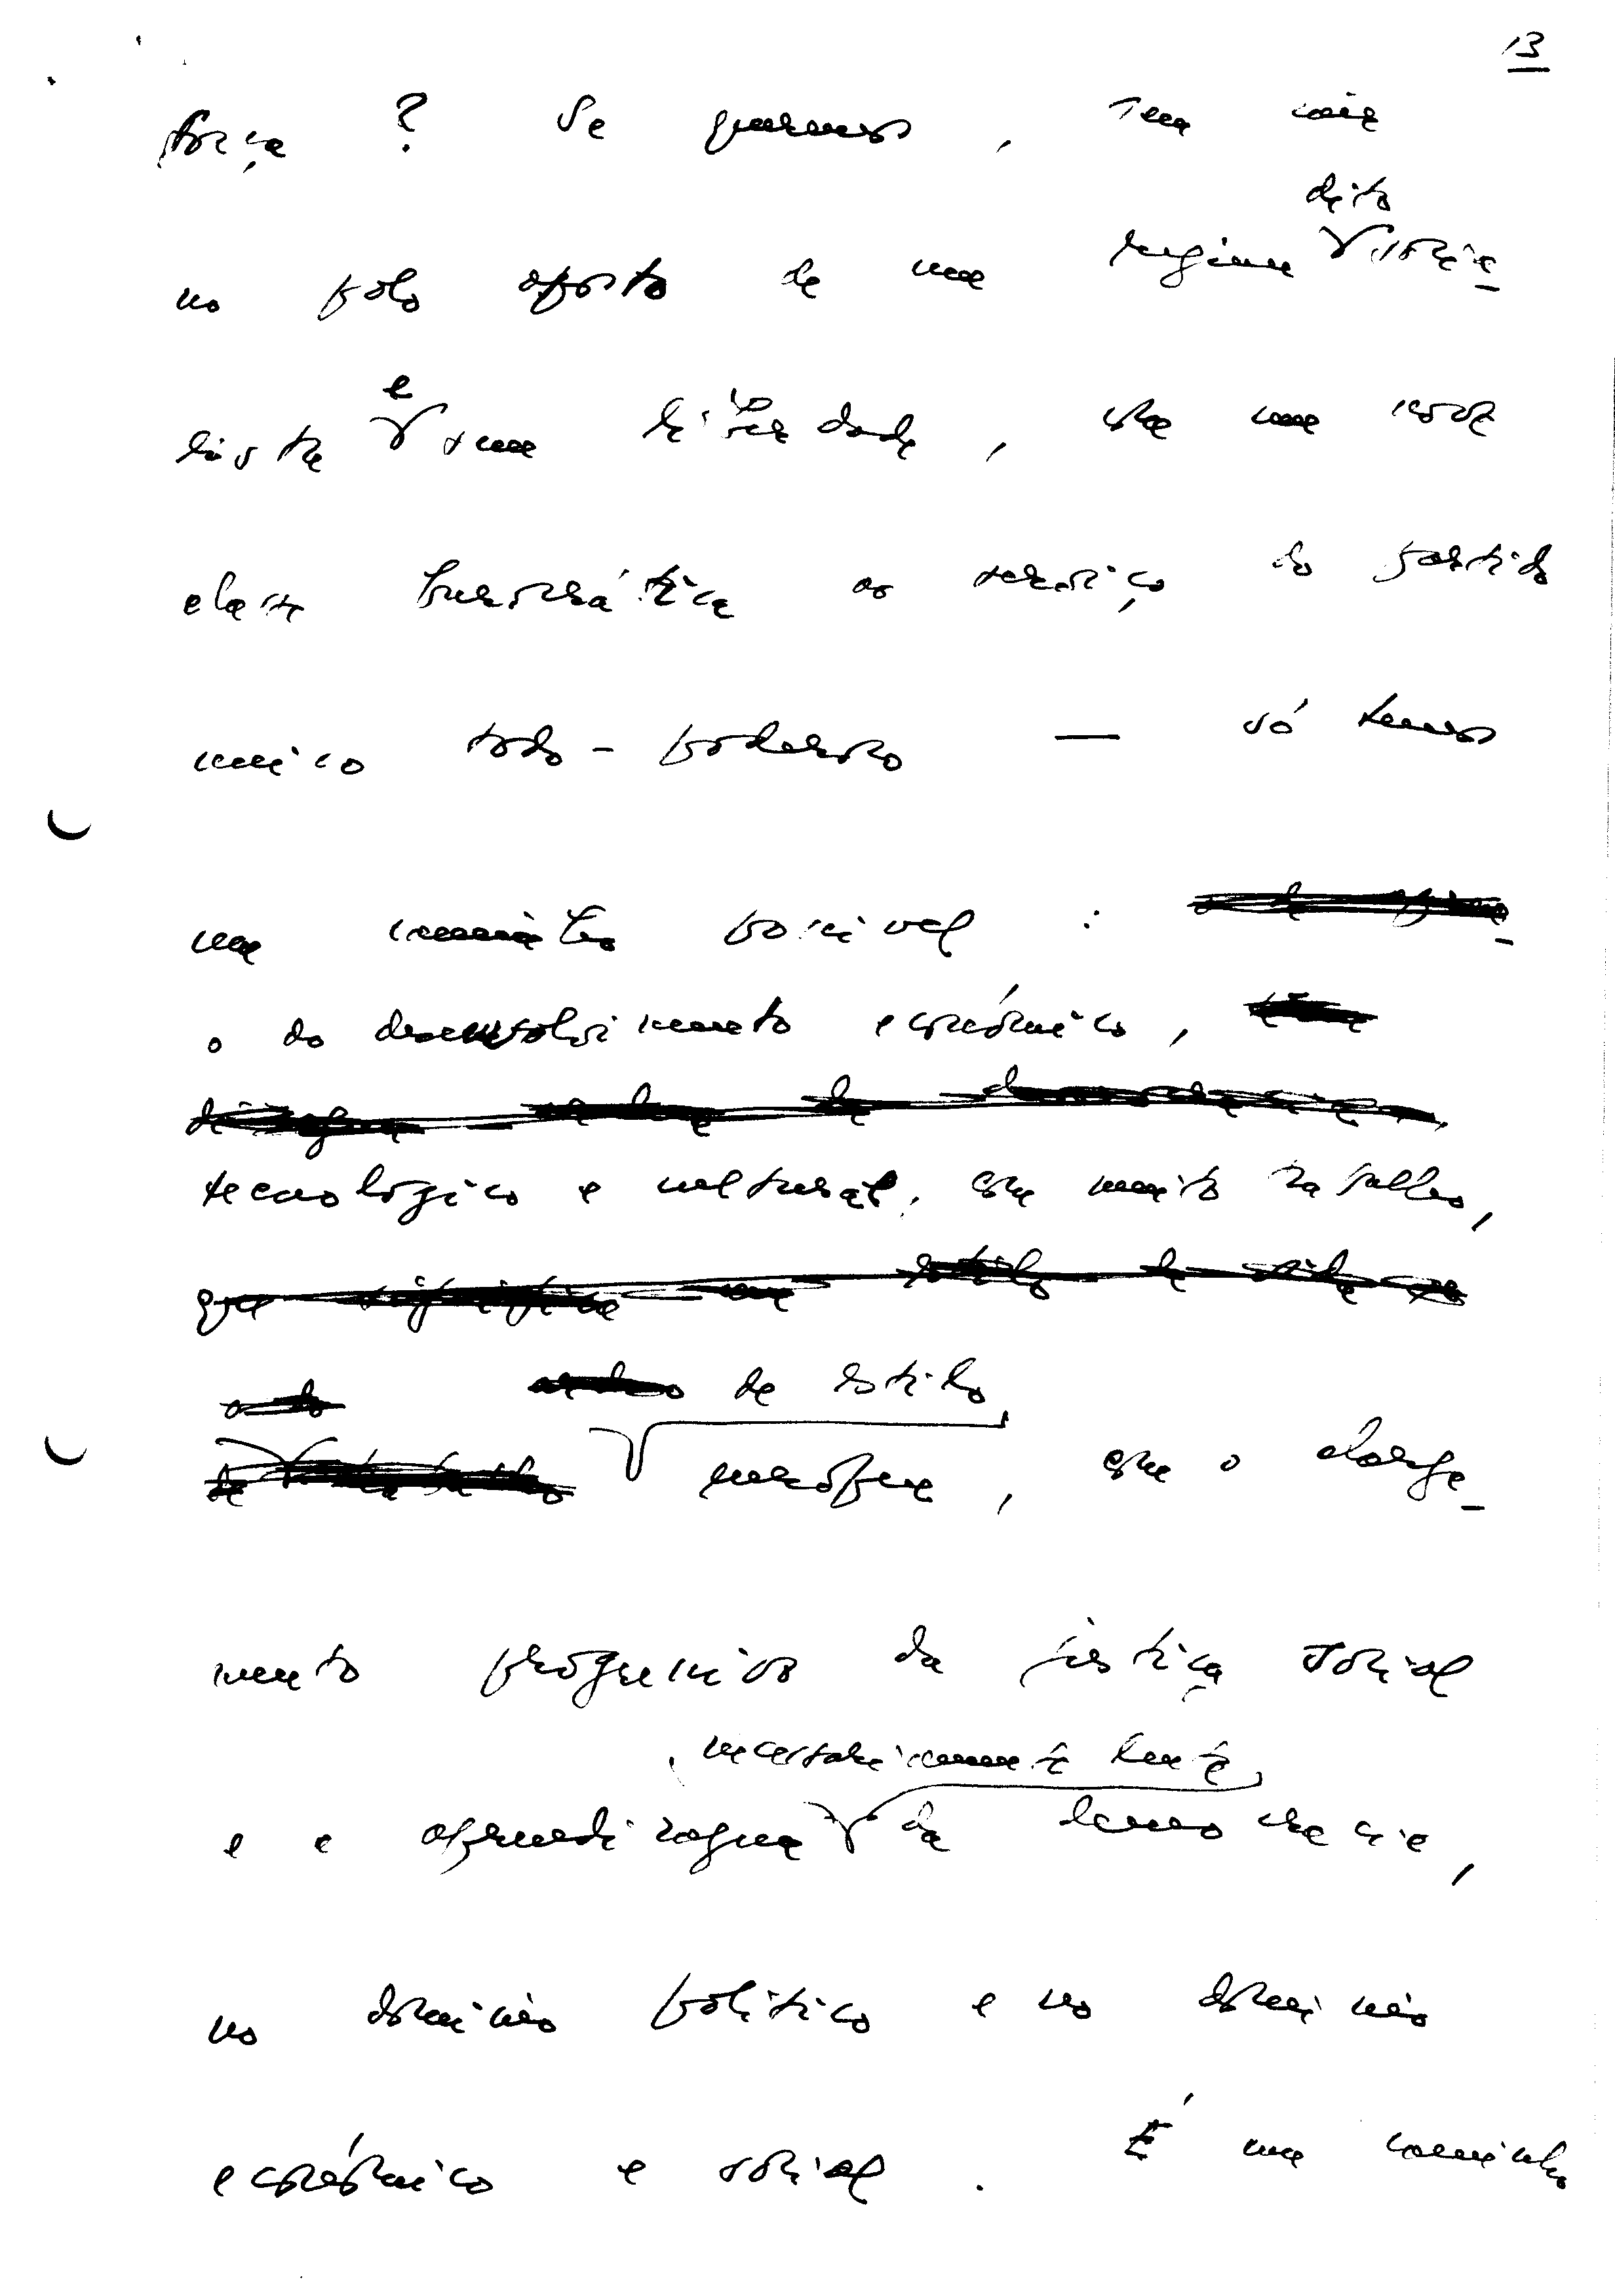 13
força ? Se queremos, sem cair
dito
no polo oposto de um regime socia-
e
lista sem liberdade, com uma nova
classe burocrática ao serviço do partido
único todo-poderoso — só temos
um caminho possível :
o do desenvolvimento económico,
tecnológico e cultural, com muito trabalho,
que
de estilo
europeu, com o alarga-
mento progressivo da justiça social
, necessariamente lenta,
e a aprendizagem da democracia,
no domínio político e no domínio
económico e social. É um caminho